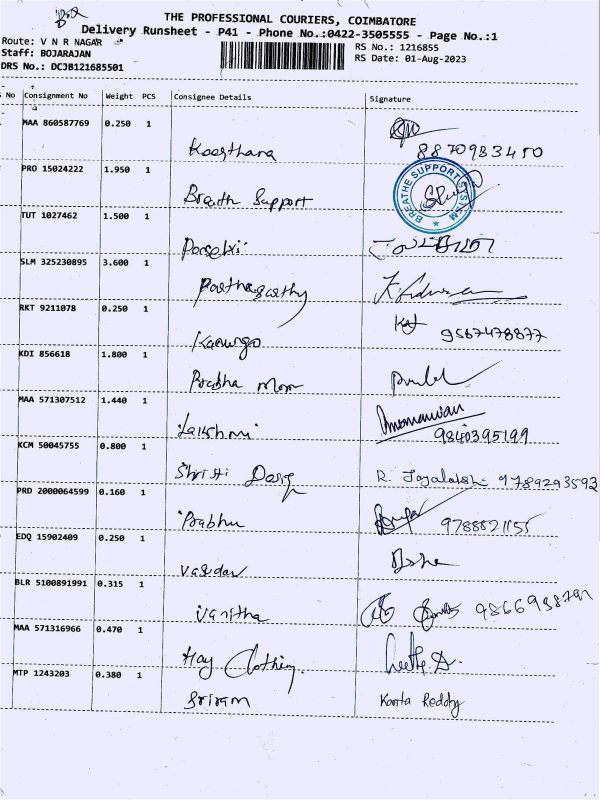 THE PROFESSIONAL COURIERS, COIMBATORE
Delivery Runsheet - P41 - Phone No.:0422-3505555 - Page No.:1
Route: V N R NAGAR
RS No.: 1216855
Staff: BOJARAJAN
RS Date: 01-Aug-2023
DRS No.: DCJB121685501
S No Consignment No Weight PCS Consignee Details Signature
MAA 860587769 0.250 1
8870983450
PRO 15024222 1.950 1
Breath Support
BREATHE SUPPORT SYSTEM
TUT 1027462 1.500 1
SLM 325230895 3.600 1
Parthasarthy
RKT 9211078 0.250 1
9567478877
KDI 856618 1.800 1
Prabha Mom
MAA 571307512 1.440 1
Lakshmi
9840395199
KCM 50045755 0.800 1
Shristi
9789293593
PRD 2000064599 0.160 1
Prabhu 9788821155
EDQ 15902409 0.250 1
Vasudav
BLR 5100891991 0.315 1
Vanitha
MAA 571316966 0.470 1
Hay Clothing
MTP 1243203 0.380 1
Sriram Kanta Reddy